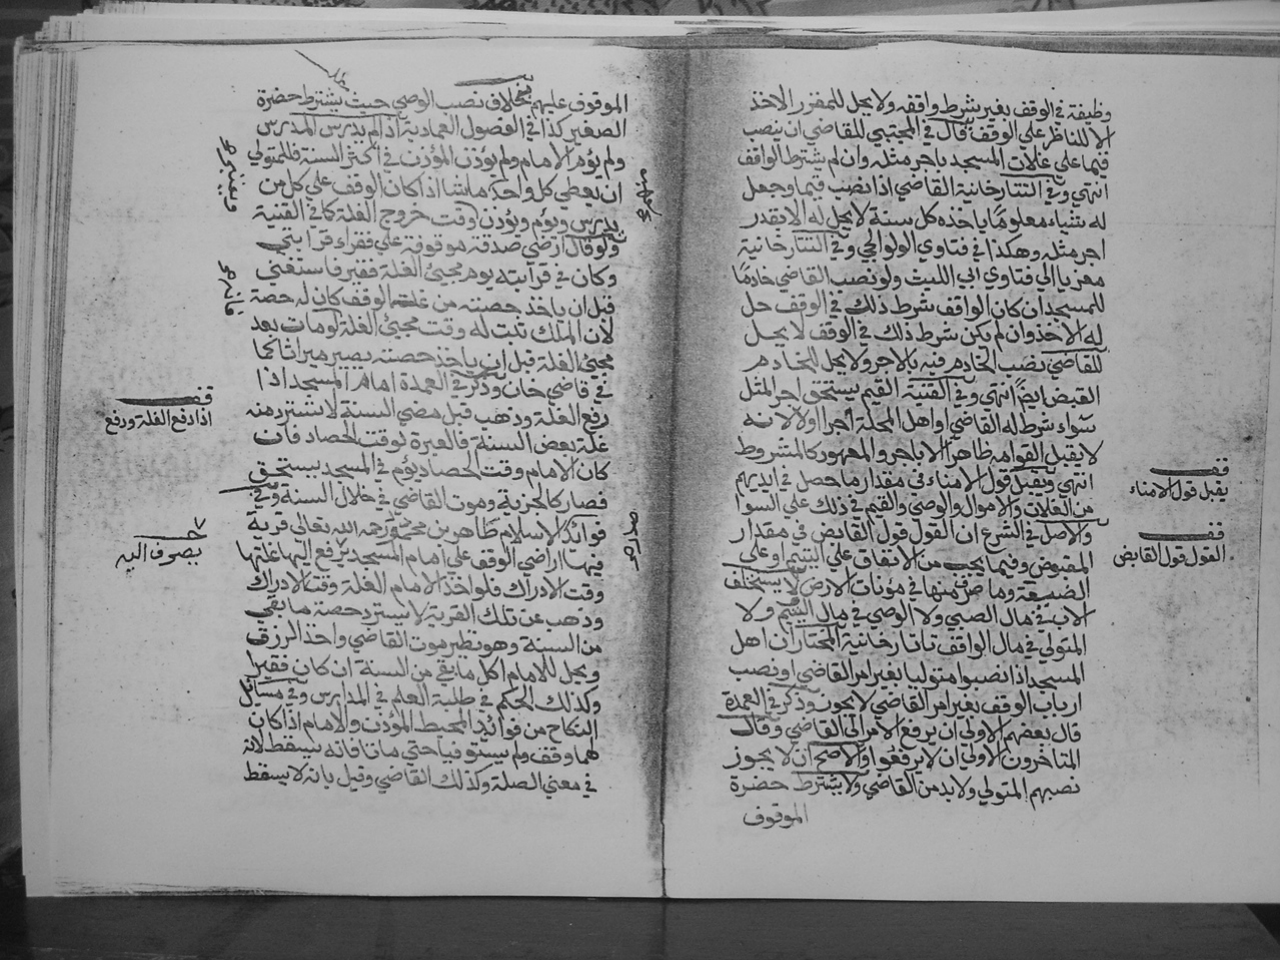 وظيفة في الوقف بغير شرط واقفه ولا يحل للمقرر الاخذ
الا للناظر علي الوقف قال في المجتبي للقاضي ان ينصب
قيما علي غلات المسجد باجر مثله وان لم يشترط الواقف
انتهي وفي التتارخانية القاضي اذا نصب قيما وجعل
له شياء معلوما ياخذه كل سنة لا يحل له الا بقدر
اجر مثله وهكذا في فتاوي الولوالجي وفي التتارخانية
معزيا الي فتاوي ابي الليث ولو نصب القاضي خادما
للمسجد ان كان الواقف شرط ذلك في الوقف حل
له الاخذ وان لم يكن شرط ذلك في الوقف لا يحل
للقاضي نصب الخادم فيه بالاجر ولا يحل للخادم
القبض ايضا انتهي وفي القنية القيم يستحق اجر المثل
سواء شرط له القاضي او اهل المحلة أجرا او لا لانه
لا يقبل القوامه ظاهرا الا باجر والمعهود كالمشروط
انتهي ويقبل قول الامناء في مقدار ما حصل في ايديهم
من الغلات والاموال والوصي والقيم في ذلك علي السوا
والاصل في الشرع ان القول قول القابض في مقدار
المقبوض وفيما يجب من الانفاق علي اليتيم او علي
الضيعة وما صرف منها في مؤنات الارض لا يستخلف
الاب في مال الصبي ولا الوصي في مال اليتيم ولا
المتولي في مال الواقف تاتارخانية المختار ان اهل
المسجد اذا نصبوا متوليا بغير امر القاضي او نصب
ارباب الوقف بغير امر القاضي لا يجوز وذكر في العمدة
قال بعضهم الاولي ان يرفع الامر الي القاضي وقال
المتاخرون الاولي ان لا يرفعوا والاصح ان لا يجوز
نصبهم المتولي ولا بد من القاضي ولا يشترط حضرة
الموقوف
قف
يقبل قول الامناء
قف
القول قول القابض
الموقوف عليهم بخلاف نصب الوصي حيث يشترط حضرة
الصغير كذا في الفصول العمادية اذا لم يدرس المدرس
ولم يؤم الامام ولم يؤذن المؤذن في اكثر السنة فللمتولي
ان يعطي كل واحد ما شا اذا كان الوقف علي كل من
يدرس ويؤم ويؤذن وقت خروج الغلة كا في القنية
ولو قال ارضي صدقة موقوفة علي فقراء قرابتي
وكان في قرابته يوم مجيئ الغلة فقير فاستغني
قبل ان ياخذ حصته من غلة الوقف كان له حصة
لان الملك ثبت له وقت مجيئ الغلة لو مات بعد
مجيئ الغلة قبل ان ياخذ حصته يصير ميراثا كما
في قاضي خان وذكر في العمدة امام المسجد اذا
رفع الغلة وذهب قبل مضي السنة لا يسترد منه
غلة بعض السنة فالعبرة لوقت الحصاد فان
كان الامام وقت الحصاد يؤم في المسجد يستحق
فصار كالجزية وموت القاضي في خلال السنة وفي
فوائد الاسلام طاهر بن محمود رحمه الله تعالي قرية
فيها اراضي الوقف علي امام المسجد يرفع اليها غلتها
وقت الادراك فلو اخذ الامام الغلة وقت الادراك
وذهب عن تلك القرية لا يسترد حصة ما بقي
من السنة وهو نظير موت القاضي واخذ الرزق
ويحل للامام اكل ما بقي من السنة ان كان فقيرا
وكذلك الحكم في طلبة العلم في المدارس وفي مسائل
النكاح من فوائد المحيط المؤذن والامام اذا كان
لهما وقف ولم يستوفيا حتي ماتا فانه يسقط لانه
في معني الصلة وكذلك القاضي وقيل بانه لا يسقط
قف
اذا دفع الغلة ورفع
يصرف اليه